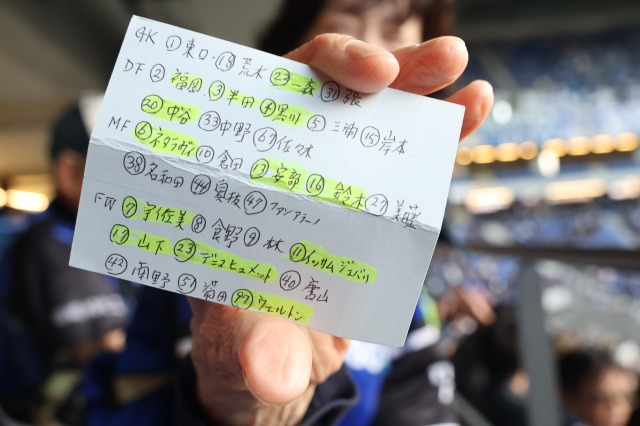 GK ①東口 ⑱荒木 ㉒一森 ㉛張
DF ②福岡 ③半田 ④黒川 ⑤三浦 ⑮岸本
⑳中谷 ㉝中野 67佐々木
MF ⑥ネタラヴィ ⑩倉田 ⑬安部 ⑯鈴木 ㉗美藤
㊳名和田 ㊹奥抜 ㊼ファンアラーノ
FW ⑦宇佐美 ⑧食野 ⑨林 ⑪イッサムジェバリ
⑰山下 ㉓デニスヒュメット ㊵唐山
㊷南野 51満田 97ウェルトン